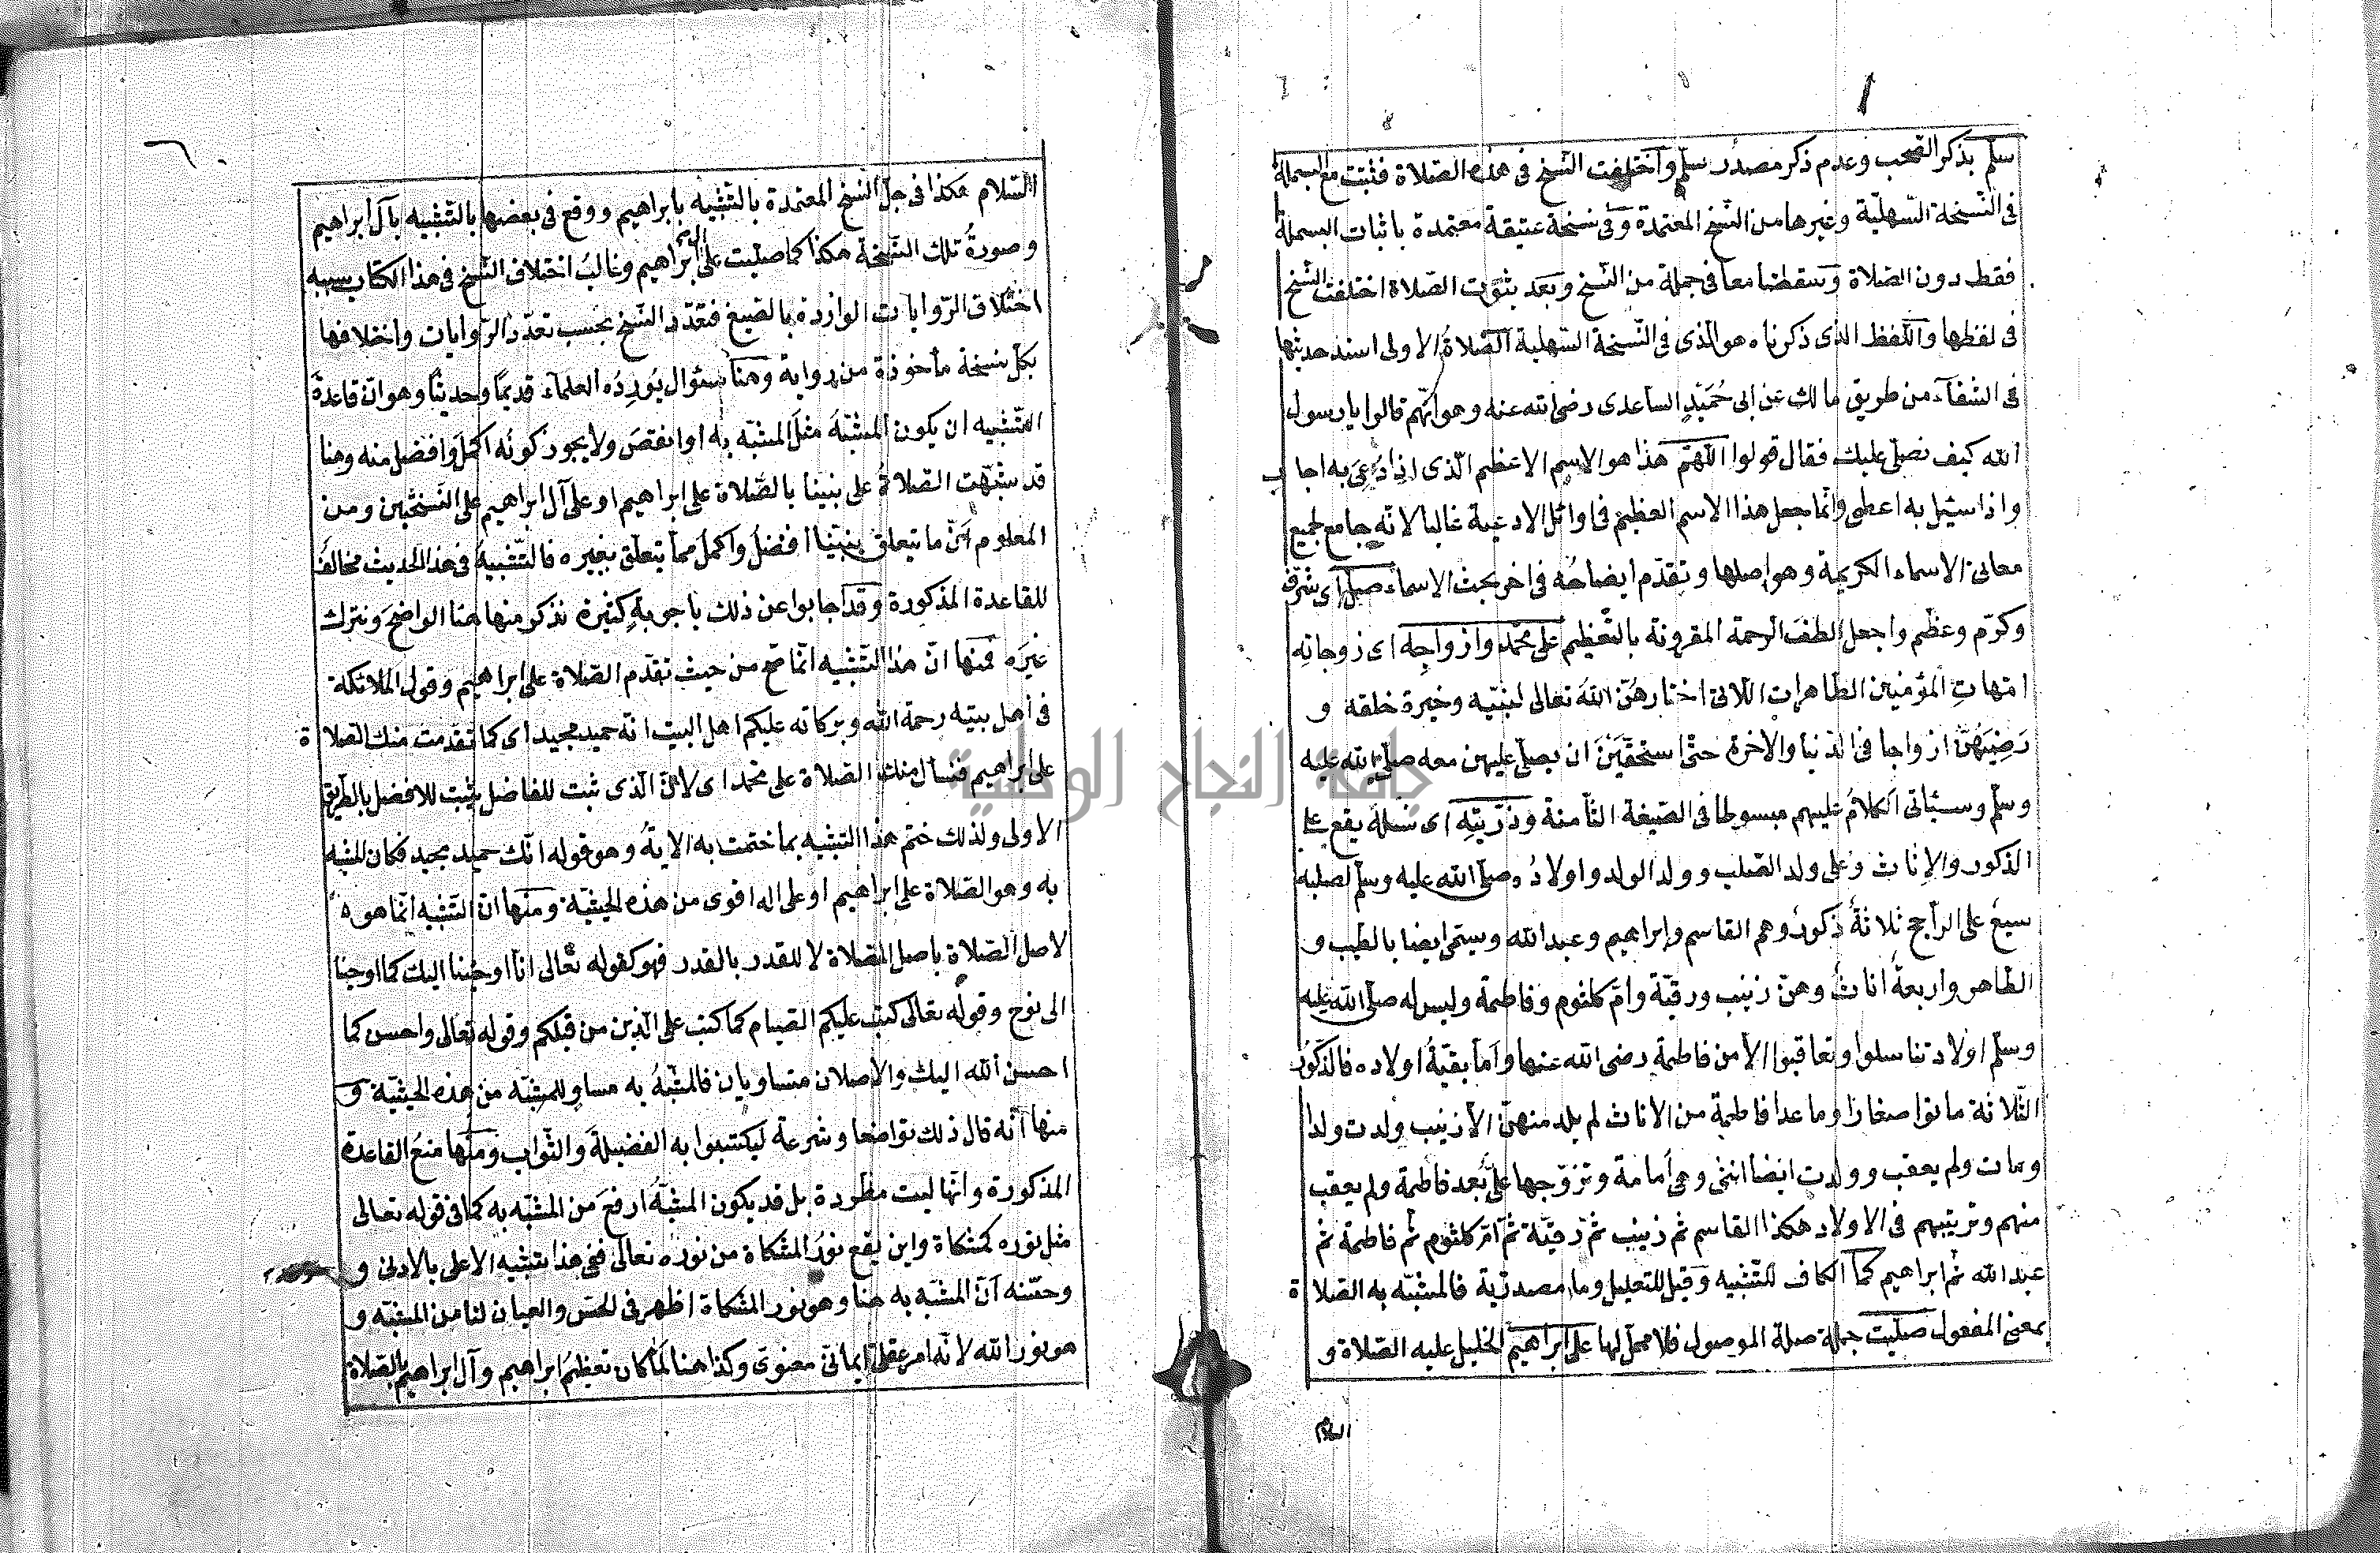 سلم بذكر الصحب وعدم ذكر مصدر سلم واختلفت النسخ فى هذه الصلاة فثبتت مع البسملة
فى النسخة السهلية وغيرها من النسخ المعتمدة وفى نسخة عتيقة معتمدة باثبات البسملة
فقط دون الصلاة وسقطتا معا فى جملة من النسخ وبعد ثبوت الصلاة اختلفت النسخ
فى لفظها واللفظ الذى ذكرناه هو الذى فى النسخة السهلية الصلاة الاولى اسند حديثها
فى الشفآء من طريق مالك عن ابى حُمَيْدٍ الساعدى رضى الله عنه وهو انهم قالوا يا رسول
الله كيف نصلى عليك فقال قولوا اللهم هذا هو الاسم الاعظم الذى اذا دُعِىَ به اجاب
واذا سئيل به اعطى وانما جعل هذا الاسم العظيم فى اوائل الادعية غالبا لانه جامع لجميع
معانى الاسماء الكريمة وهو اصلها وتقدم ايضاحه فى اخر بحث الاسماء صل اى شرف
وكرم وعظم واجعل الطف الرحمة المقرونة بالتعظيم على محمد وازواجه اى زوجاته
امهات المؤمنين الطاهرات اللاتى اختارهن الله تعالى لنبيه وخيرة خلقه و
رَضِيَهُنَّ ازواجا فى الدنيا والاخرة حتى استحقين ان يصلى عليهن معه صلى الله عليه
وسلم وسياتى الكلام عليهم مبسوطا فى الصيغة الثامنة وذريته اى نسله يقع على
الذكور والاناث وعلى ولد الصلب وولد الولد واولاده صلى الله عليه وسلم لصلبه
سبع على الراجح ثلاثة ذكور وهم القاسم وابراهيم وعبد الله ويسمى ايضا بالطيب و
الطاهر واربعة اناث وهن زينب ورقية وام كلثوم وفاطمة وليس له صلى الله عليه
وسلم اولاد تناسلوا وتعاقبوا الا من فاطمة رضى الله عنها واما بقية اولاده فالذكور
الثلاثة ماتوا صغارا وما عدا فاطمة من الاناث لم يلد منهن الا زينب ولدت ولدا
ومات ولم يعقب وولدت ايضا انثى وهى أمامة وتزوجها على بعد فاطمة ولم يعقب
منهم وترتيبهم فى الاولاد هكذا القاسم ثم زينب ثم رقية ثم ام كلثوم ثم فاطمة ثم
عبد الله ثم ابراهيم كما الكاف للتشبيه وقيل للتعليل وما مصدرية فالمشبه به الصلاة
بمعنى المفعول صليت جملة صلة الموصول فلا محل لها على ابراهيم الخليل عليه الصلاة و
السلام
السلام هكذا فى جل النسخ المعتمدة بالتشبيه بابراهيم ووقع فى بعضها بالتشبيه بآل ابراهيم
وصورة تلك النسخة هكذا كما صليت على آل ابراهيم وغالب اختلاف النسخ فى هذا الكتاب سببه
اختلاف الروايات الواردة بالصيغ فتعدد النسخ بحسب تعدد الروايات واختلافها
بكل نسخة مأخوذة من رواية وهنا سئوال يُورِدُه العلمآء قديمًا وحديثًا وهو ان قاعدة
التشبيه ان يكون المشبه مثل المشبه به او انقص ولا يجوز كونه اكمل وافضل منه وهنا
قد شبهت الصلاة على نبينا بالصلاة على ابراهيم او على آل ابراهيم على النسختين ومن
المعلوم ان ما يتعلق بنبينا افضل واكمل مما يتعلق بغيره فالتشبيه فى هذا الحديث مخالف
للقاعدة المذكورة وقد اجابوا عن ذلك باجوبة كثيرة نذكر منها هنا الواضح ونترك
غيره فمنها ان هذا التشبيه انما صح من حيث تقدم الصلاة على ابراهيم وقول الملائكة
فى اهل بيته رحمة الله وبركاته عليكم اهل البيت انه حميد مجيد اى كما تقدمت منك الصلاة
على ابراهيم فنسال منك الصلاة على محمد اى لان الذى ثبت للفاضل يثبت للافضل بالطريق
الاولى ولذلك ختم هذا التشبيه بما ختمت به الاية وهو قوله انك حميد مجيد فكان المشبه
به وهو الصلاة على ابراهيم او على اله اقوى من هذه الحيثية ومنها ان التشبيه انما هو
لاصل الصلاة باصل الصلاة لا للقدر بالقدر فهو كقوله تعالى انا اوحينا اليك كما اوحينا
الى نوح وقوله تعالى كتب عليكم الصيام كما كتب على الذين من قبلكم وقوله تعالى واحسن كما
احسن الله اليك والاصلان متساويان فالمشبه به مساو للمشبه من هذه الحيثية و
منها انه قال ذلك تواضعا وشرعة ليكتسبوا به الفضيلة والثواب ومنها منع القاعدة
المذكورة وانها ليست مطردة بل قد يكون المشبه ارفع من المشبه به كما فى قوله تعالى
مثل نوره كمشكاة واين يقع نور المشكاة من نوره تعالى ففى هذا تشبيه الاعلى بالادنى و
وحسنه ان المشبه به هنا وهو نور المشكاة اظهر فى الحس والعيان لنا من المشبه و
هو نور الله لانه امر عقلى ايمانى معنوى وكذا هنا لما كان تعظيم ابراهيم وآل ابراهيم بالصلاة
جامعة النجاح الوطنية